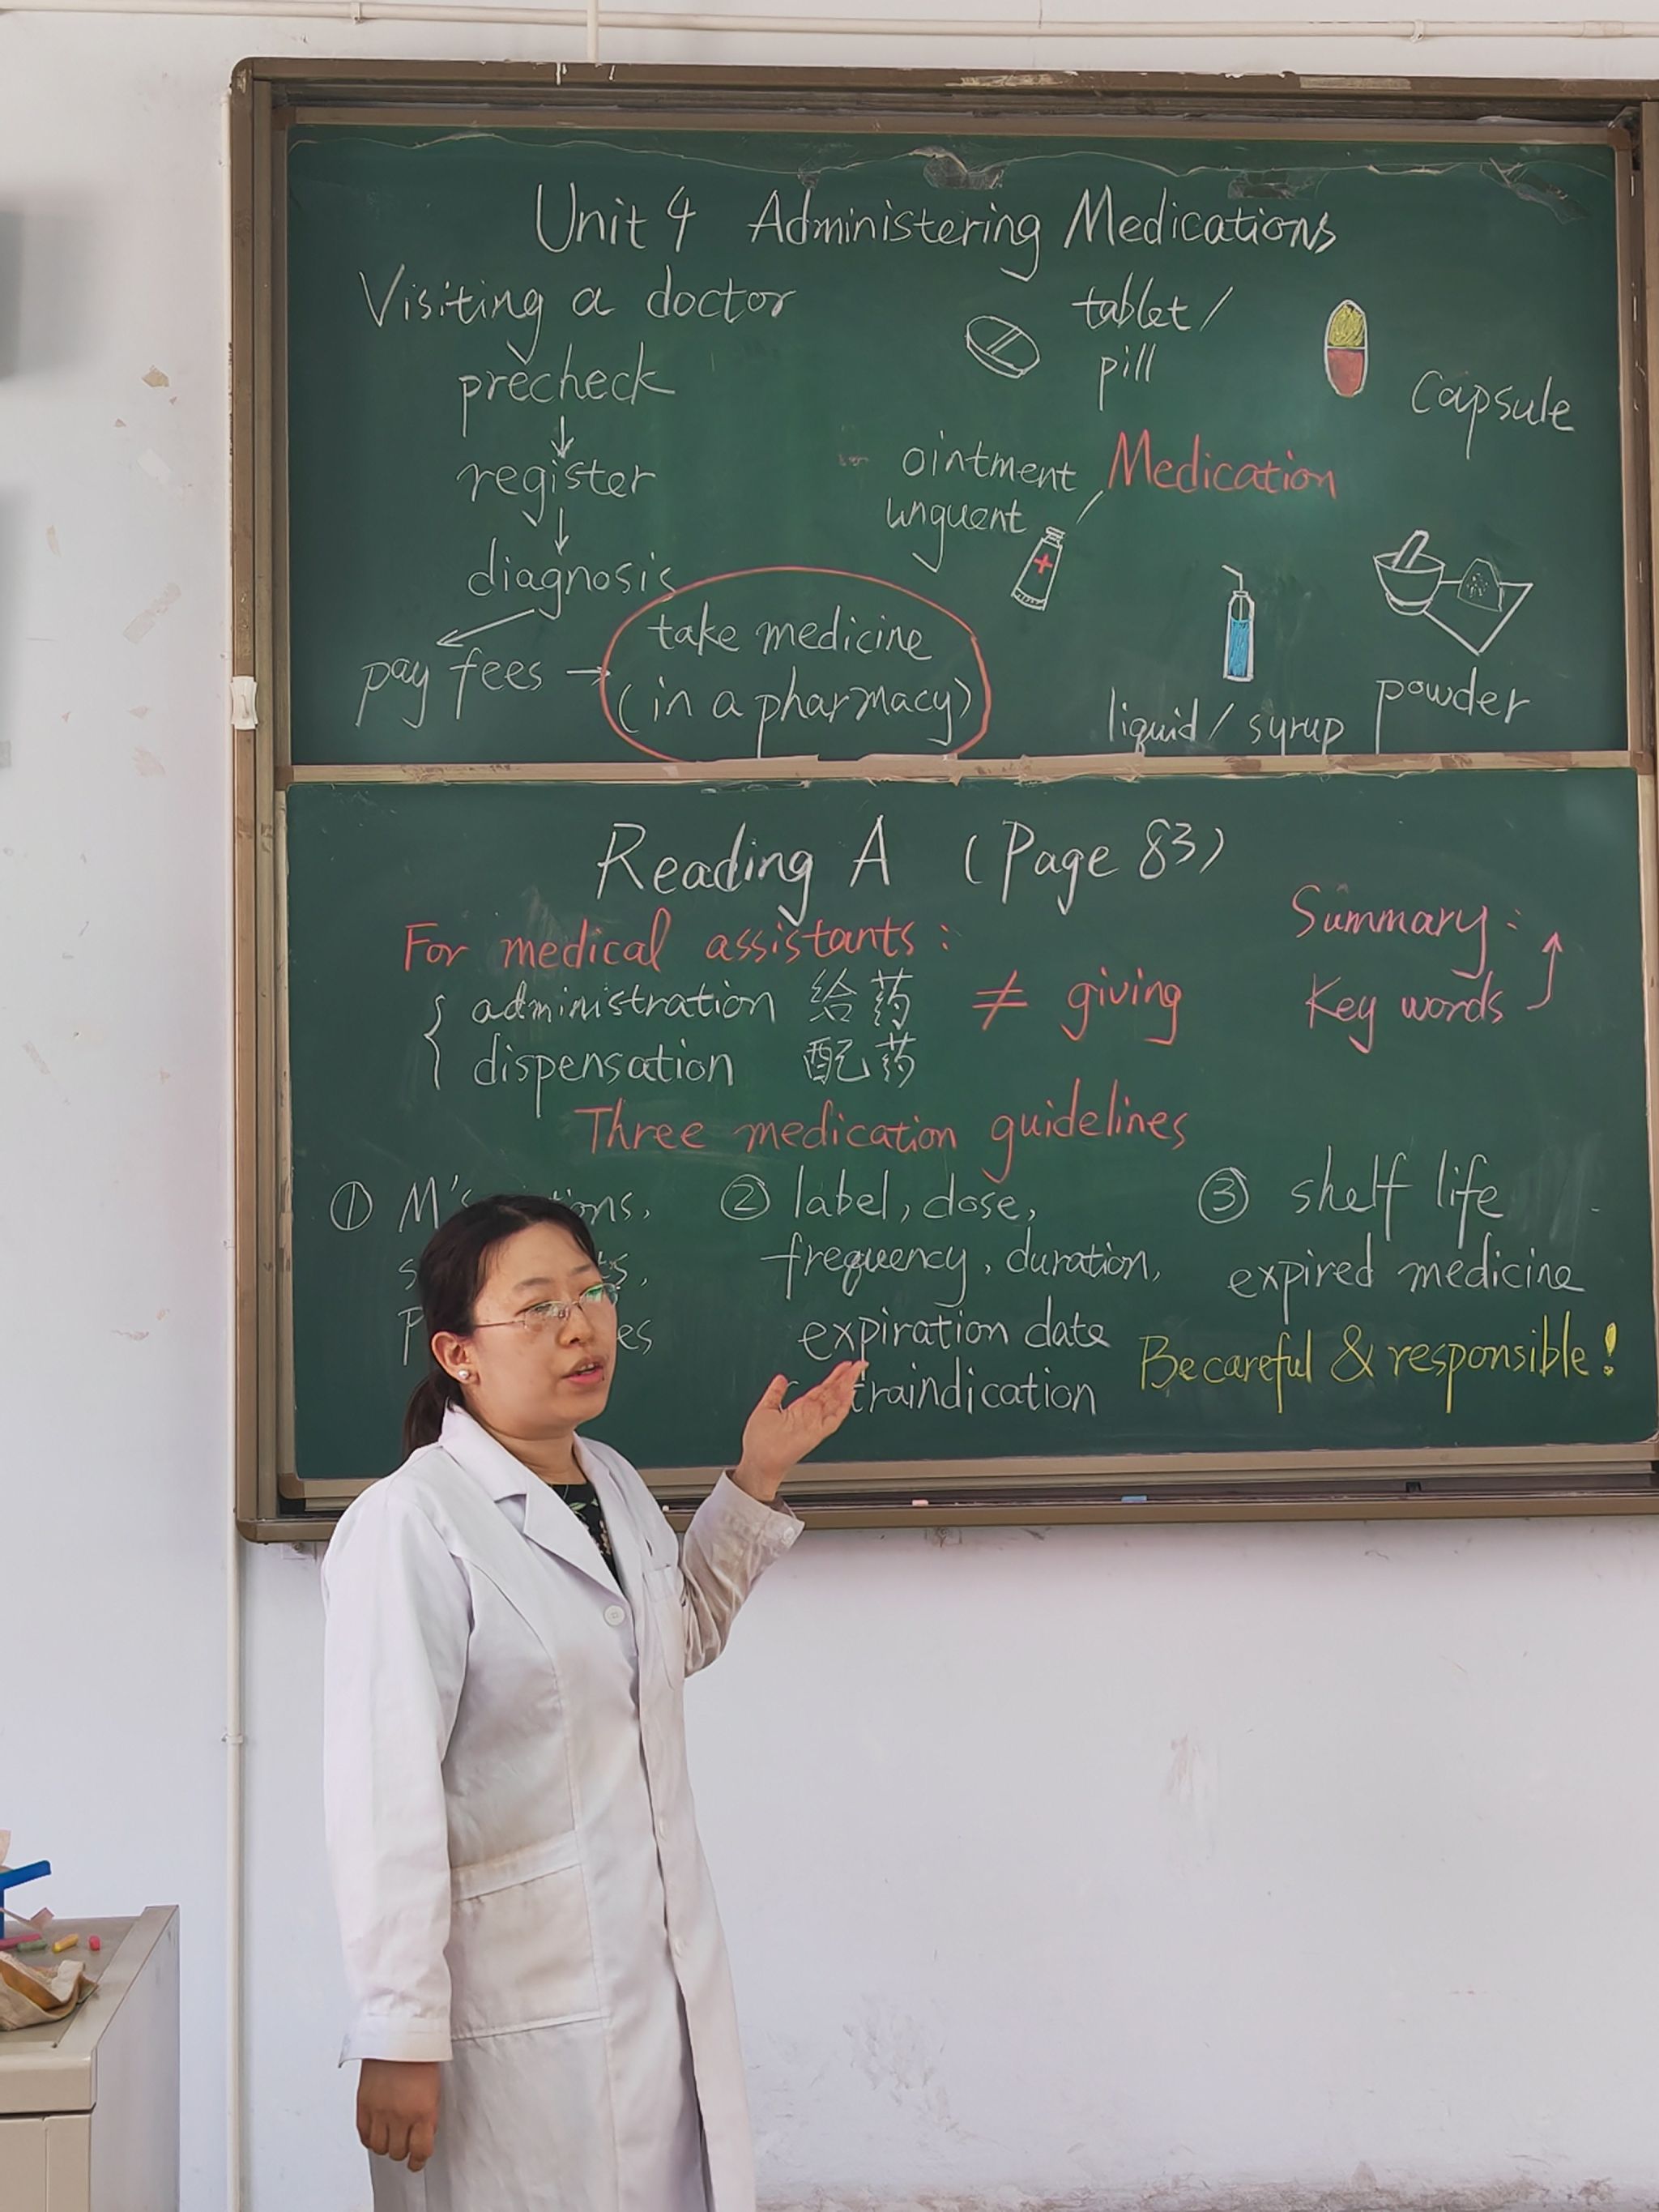 Unit 4 Administering Medications
Visiting a doctor
precheck
register
diagnosis
pay fees
take medicine
(in a pharmacy)
tablet /
pill
Capsule
ointment
unguent
Medication
liquid / syrup
powder
Reading A (Page 83)
For medical assistants :
administration 给药 ≠ giving
dispensation 配药
Summary :
Key words
Three medication guidelines
① M's
② label, dose,
frequency, duration,
expiration date
③ shelf life
expired medicine
Be careful & responsible!